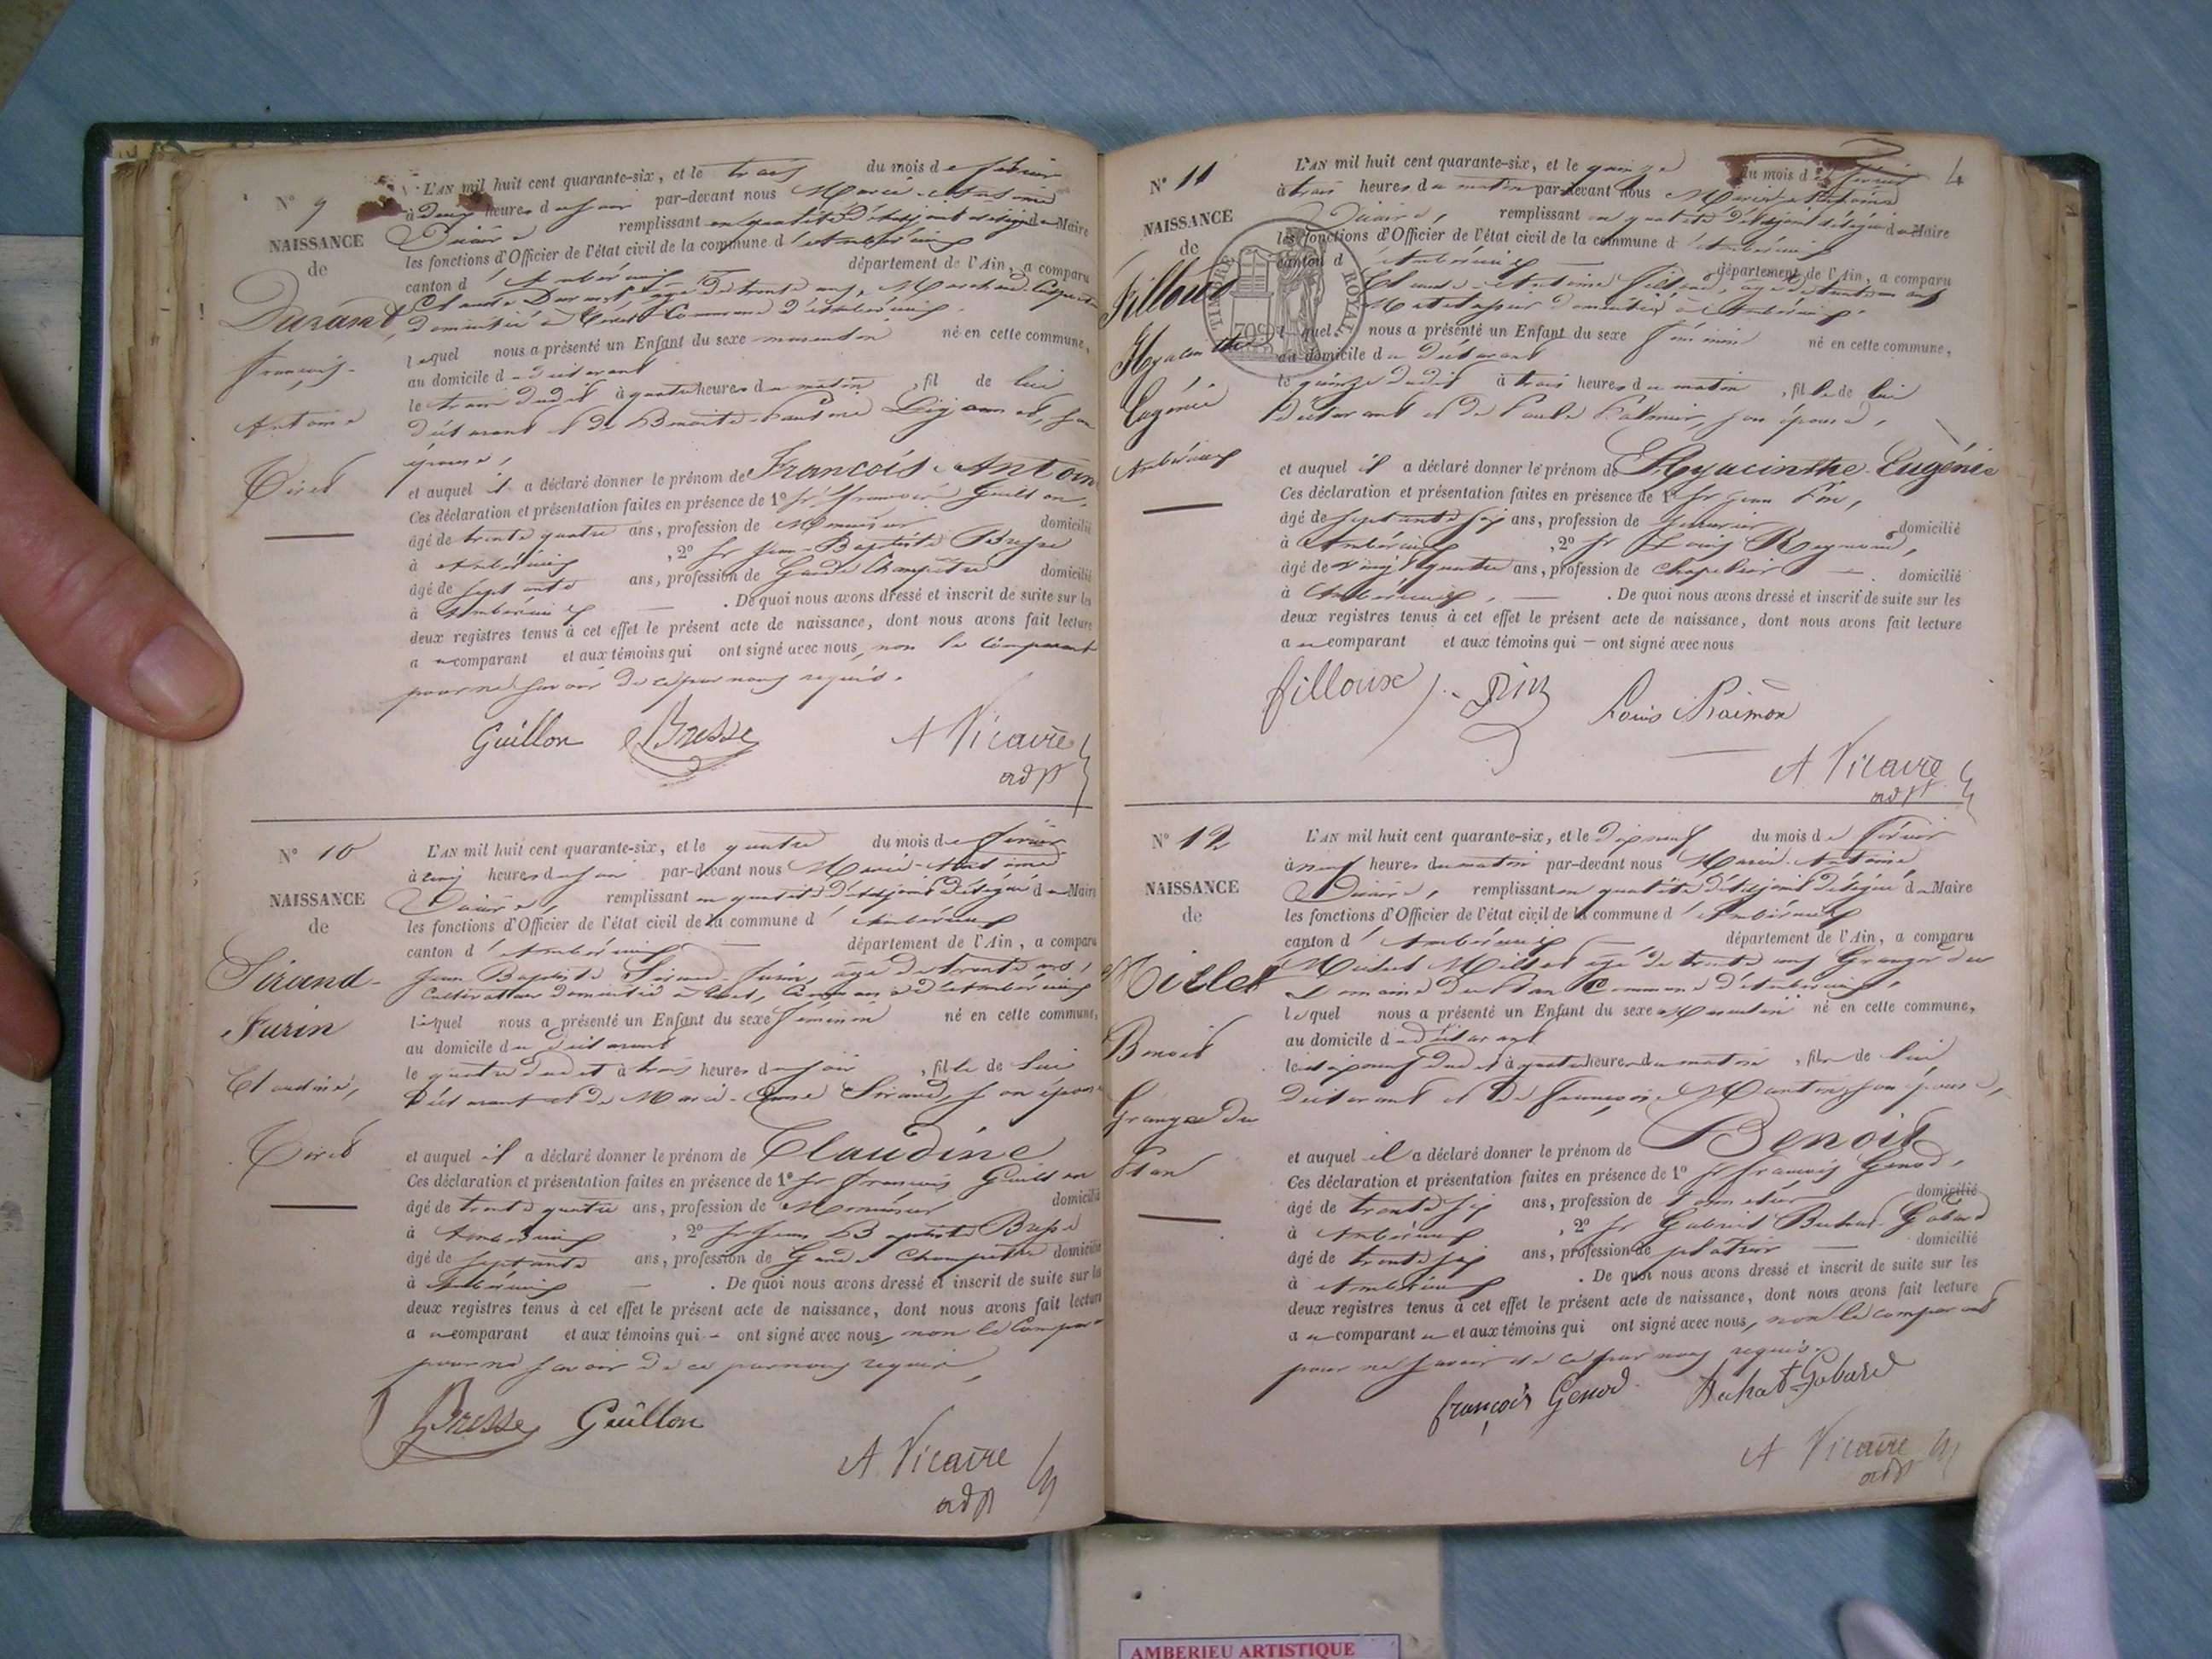 N° 9
NAISSANCE
de
Durand,
François-
Antoine
Tiret
L'AN mil huit cent quarante-six, et le trois du mois de février
à deux heures du soir par-devant nous Marie-Antoine
Vicaire remplissant en qualité d'adjoint délégué du Maire
les fonctions d'Officier de l'état civil de la commune d'Ambérieux
canton d'Ambérieux département de l'Ain, a comparu
Claude Durand, âgé de trente ans, Marchand
domicilié à Tiret Commune d'Ambérieux.
lequel nous a présenté un Enfant du sexe masculin né en cette commune,
au domicile du déclarant
le trois dudit à quatre heures du matin, fil de lui
déclarant et de Benoite-Pauline son
épouse,
et auquel il a déclaré donner le prénom de François-Antoine
Ces déclaration et présentation faites en présence de 1° sr François Guillon,
âgé de trente quatre ans, profession de Menuisier domicilié
à Ambérieux, 2° sr Jean-Baptiste Bresse
âgé de septante ans, profession de Garde Champêtre domicilié
à Ambérieux. De quoi nous avons dressé et inscrit de suite sur les
deux registres tenus à cet effet le présent acte de naissance, dont nous avons fait lecture
au comparant et aux témoins qui ont signé avec nous, non le comparant
pour ne savoir de ce par nous requis.
Guillon Bresse A Vicaire
adjt
N° 10
NAISSANCE
de
Sirand-
Furin
Claudine,
Tiret
L'AN mil huit cent quarante-six, et le quatre du mois de février
à cinq heures du soir par-devant nous Marie-Antoine
Vicaire, remplissant en qualité d'adjoint délégué du Maire
les fonctions d'Officier de l'état civil de la commune d'Ambérieux
canton d'Ambérieux département de l'Ain, a comparu
Jean Baptiste Sirand-Furin, âgé de trente ans,
Cultivateur domicilié à Tiret, Commune d'Ambérieux
lequel nous a présenté un Enfant du sexe féminin né en cette commune,
au domicile du déclarant
le quatre dudit à trois heures du soir, fille de lui
déclarant et de Marie-Anne Sirand, son épouse
et auquel il a déclaré donner le prénom de Claudine
Ces déclaration et présentation faites en présence de 1° sr François Guillon
âgé de trente quatre ans, profession de Menuisier domicilié
à Ambérieux, 2° sr Jean Baptiste Bresse
âgé de septante ans, profession de Garde Champêtre domicilié
à Ambérieux. De quoi nous avons dressé et inscrit de suite sur les
deux registres tenus à cet effet le présent acte de naissance, dont nous avons fait lecture
au comparant et aux témoins qui - ont signé avec nous, non le comparant
pour ne savoir de ce par nous requis,
Bresse Guillon
A. Vicaire
adjt
4
N° 11
NAISSANCE
de
Filloux
Hyacinthe
Eugénie
Ambérieux
TIMBRE ROYAL
L'AN mil huit cent quarante-six, et le quinze du mois de février
à trois heures du matin par-devant nous Marie-Antoine
Vicaire, remplissant en qualité d'adjoint délégué du Maire
les fonctions d'Officier de l'état civil de la commune d'Ambérieux
canton d'Ambérieux département de l'Ain, a comparu
Claude-Antoine Filloux, âgé de ans
Matelassier domicilié à Ambérieux.
lequel nous a présenté un Enfant du sexe féminin né en cette commune,
au domicile du déclarant
le quinze dudit à trois heures du matin, fille de lui
déclarant et de Paule son épouse,
et auquel il a déclaré donner le prénom de Hyacinthe-Eugénie
Ces déclaration et présentation faites en présence de 1° sr Jean
âgé de septante six ans, profession de domicilié
à Ambérieux, 2° sr Louis Reymond,
âgé de vingt quatre ans, profession de chapelier domicilié
à Ambérieux. De quoi nous avons dressé et inscrit de suite sur les
deux registres tenus à cet effet le présent acte de naissance, dont nous avons fait lecture
au comparant et aux témoins qui - ont signé avec nous
filloux Louis Raimon
A Vicaire
adjt
N° 12
NAISSANCE
de
Millet
Benoit
Grange du
Plan
L'AN mil huit cent quarante-six, et le dix neuf du mois de février
à neuf heures du matin par-devant nous Marie-Antoine
Vicaire, remplissant en qualité d'adjoint délégué du Maire
les fonctions d'Officier de l'état civil de la commune d'Ambérieux
canton d'Ambérieux département de l'Ain, a comparu
Michel Millet âgé de trente ans Granger du
Domaine du Plan Commune d'Ambérieux,
lequel nous a présenté un Enfant du sexe Masculin né en cette commune,
au domicile du déclarant
le dix neuf dudit à quatre heures du matin, fils de lui
déclarant et de Françoise son épouse,
et auquel il a déclaré donner le prénom de Benoit
Ces déclaration et présentation faites en présence de 1° sr François Genod,
âgé de trente six ans, profession de domicilié
à Ambérieux, 2° sr Gabriel Buhat-Gobard
âgé de trente six ans, profession de plâtrier domicilié
à Ambérieux. De quoi nous avons dressé et inscrit de suite sur les
deux registres tenus à cet effet le présent acte de naissance, dont nous avons fait lecture
au comparant et aux témoins qui ont signé avec nous, non le comparant
pour ne savoir de ce par nous requis.
françois Genod Buhat-Gobard
A Vicaire
adjt
AMBERIEU ARTISTIQUE